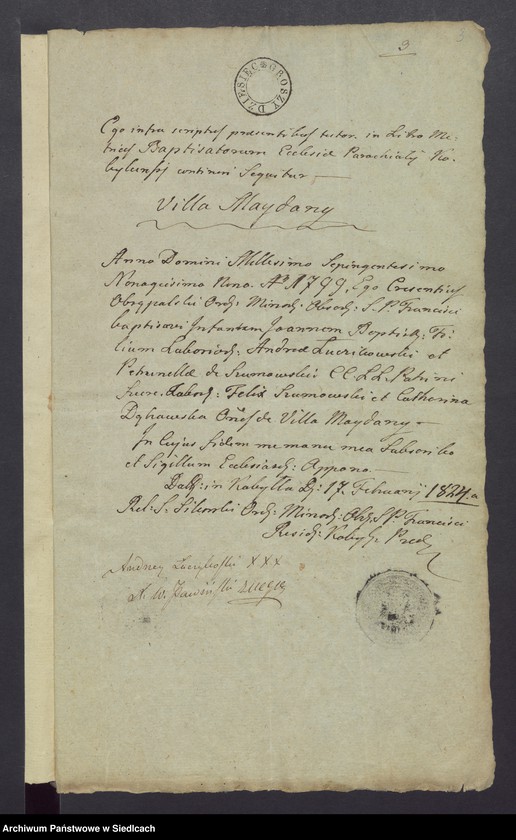 3
DZIESIĘC GROSZY
Ego infra scriptus praesentibus testor. in Libro Me-
tricis Baptisatorum Ecclesiae Parochialis Ko-
bylensis contineri Sequitur
Villa Maydany
Anno Domini Millesimo Septingentesimo
Nonagesimo Nono. 1799, Ego Crescentius
Ord: Minor: Observ: S. P. Francisci
baptisavi Infantem Joannem Baptist: Fi-
lium Laborios: Andreae Luczikowski et
Petronellae de Szumowskie CC. LL. Patrini
fuere. Labor: Felix Szumowski et Catharina
Dąbrowska de Villa Maydany
In Cujus fidem me manu mea Subscribo
et Sigillum Appono
Dat: in Kobylka D: 17 Februarij 1824 a
Ord: Minor: Obs: S P Francisci
Resid: Kobyl:
Andrzey XXX